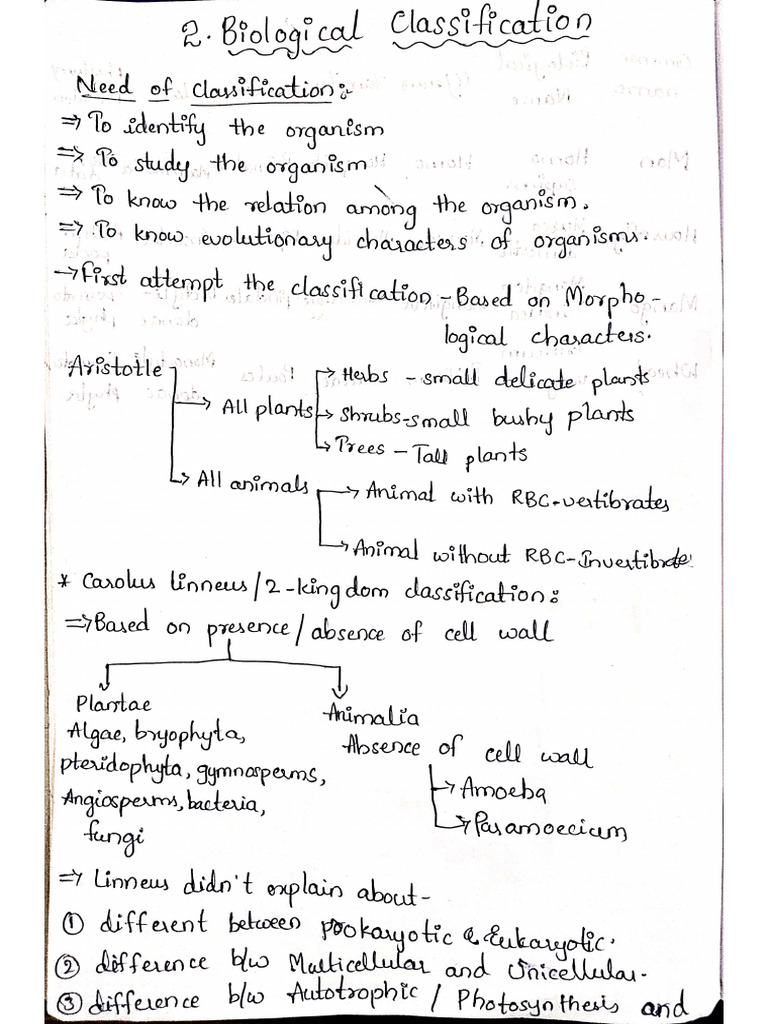 2. Biological Classification
Need of Classification:-
⇒ To identify the organism
⇒ To study the organism
⇒ To know the relation among the organism.
⇒ To know evolutionary characters of organisms.
→ First attempt the classification - Based on Morpho-
logical characters.
Aristotle
→ All plants
→ Herbs - small delicate plants
→ Shrubs - small bushy plants
→ Trees - Tall plants
→ All animals
→ Animal with RBC - vertibrates
→ Animal without RBC - Invertibrate
* Carolus linneus / 2-kingdom classification:
⇒ Based on presence / absence of cell wall
Plantae
Algae, bryophyta,
pteridophyta, gymnosperms,
Angiosperms, bacteria,
fungi
Animalia
Absence of cell wall
→ Amoeba
→ Paramoecium
⇒ Linneus didn't explain about-
① different between prokaryotic & Eukaryotic.
② difference b/w Multicellular and Unicellular.
③ difference b/w Autotrophic / Photosynthesis and